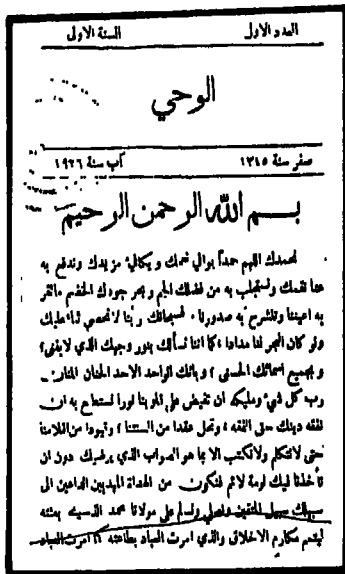 العدد الاول السنة الاولى
الوحي
صفر سنة ١٣٤٥ آب سنة ١٩٢٦
بسم الله الرحمن الرحيم
نحمدك اللهم حمداً يوالي نعمك ويكافئ مزيدك وندفع به
عنا نقمك ونستجلب به من فضلك الجم وبحر جودك الخضم ماتقر
به اعيننا وتنشرح به صدورنا فسبحانك ربنا لانحصي ثناء عليك
ولو كان البحر لنا مدادا، كما اننا نسألك بنور وجهك الذي لايفنى؟
وبجميع اسمائك الحسنى، وبانك الواحد الاحد الحنان المنان
رب كل شيء ومليكه ان تفيض على قلوبنا نورا نستطيع به ان
نفقه دينك حق الفقه، وتحل عقدا من السنتنا، وقيودا من اقلامنا
حتى لانتكلم ولانكتب الا بما هو الصواب الذي يرضيك دون ان
تأخذنا فيك لومة لائم فنكون من الهداة المهديين الداعين الى
سبيلك سبيل المتقين ونصلي ونسلم على مولانا محمد الذي بعثته
ليتمم مكارم الاخلاق والذي امرت العباد بطاعته كما امرت العباد